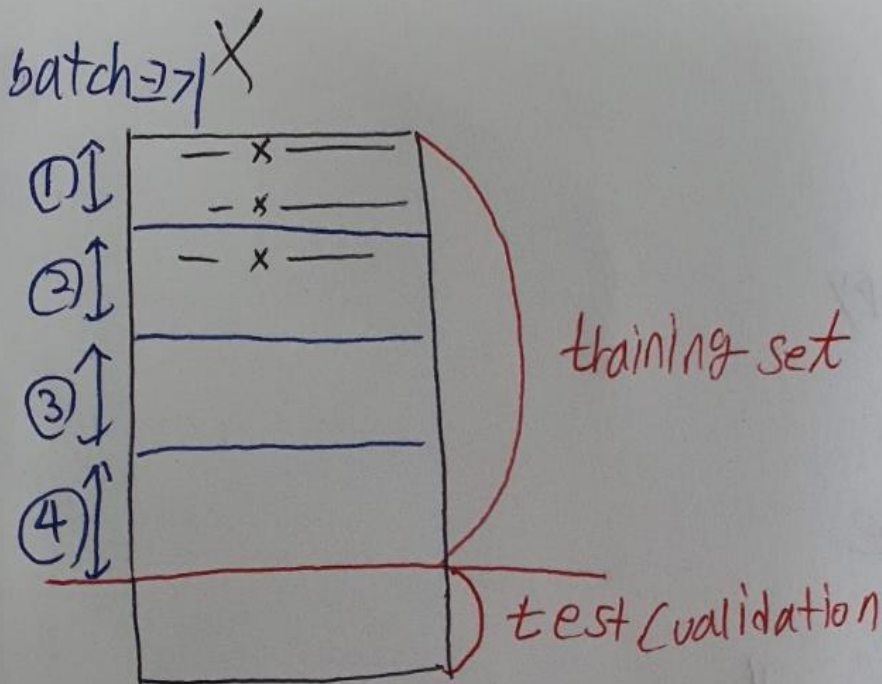 batch => X
① — x —
— x —
② — x —
③
training set
④
test (validation